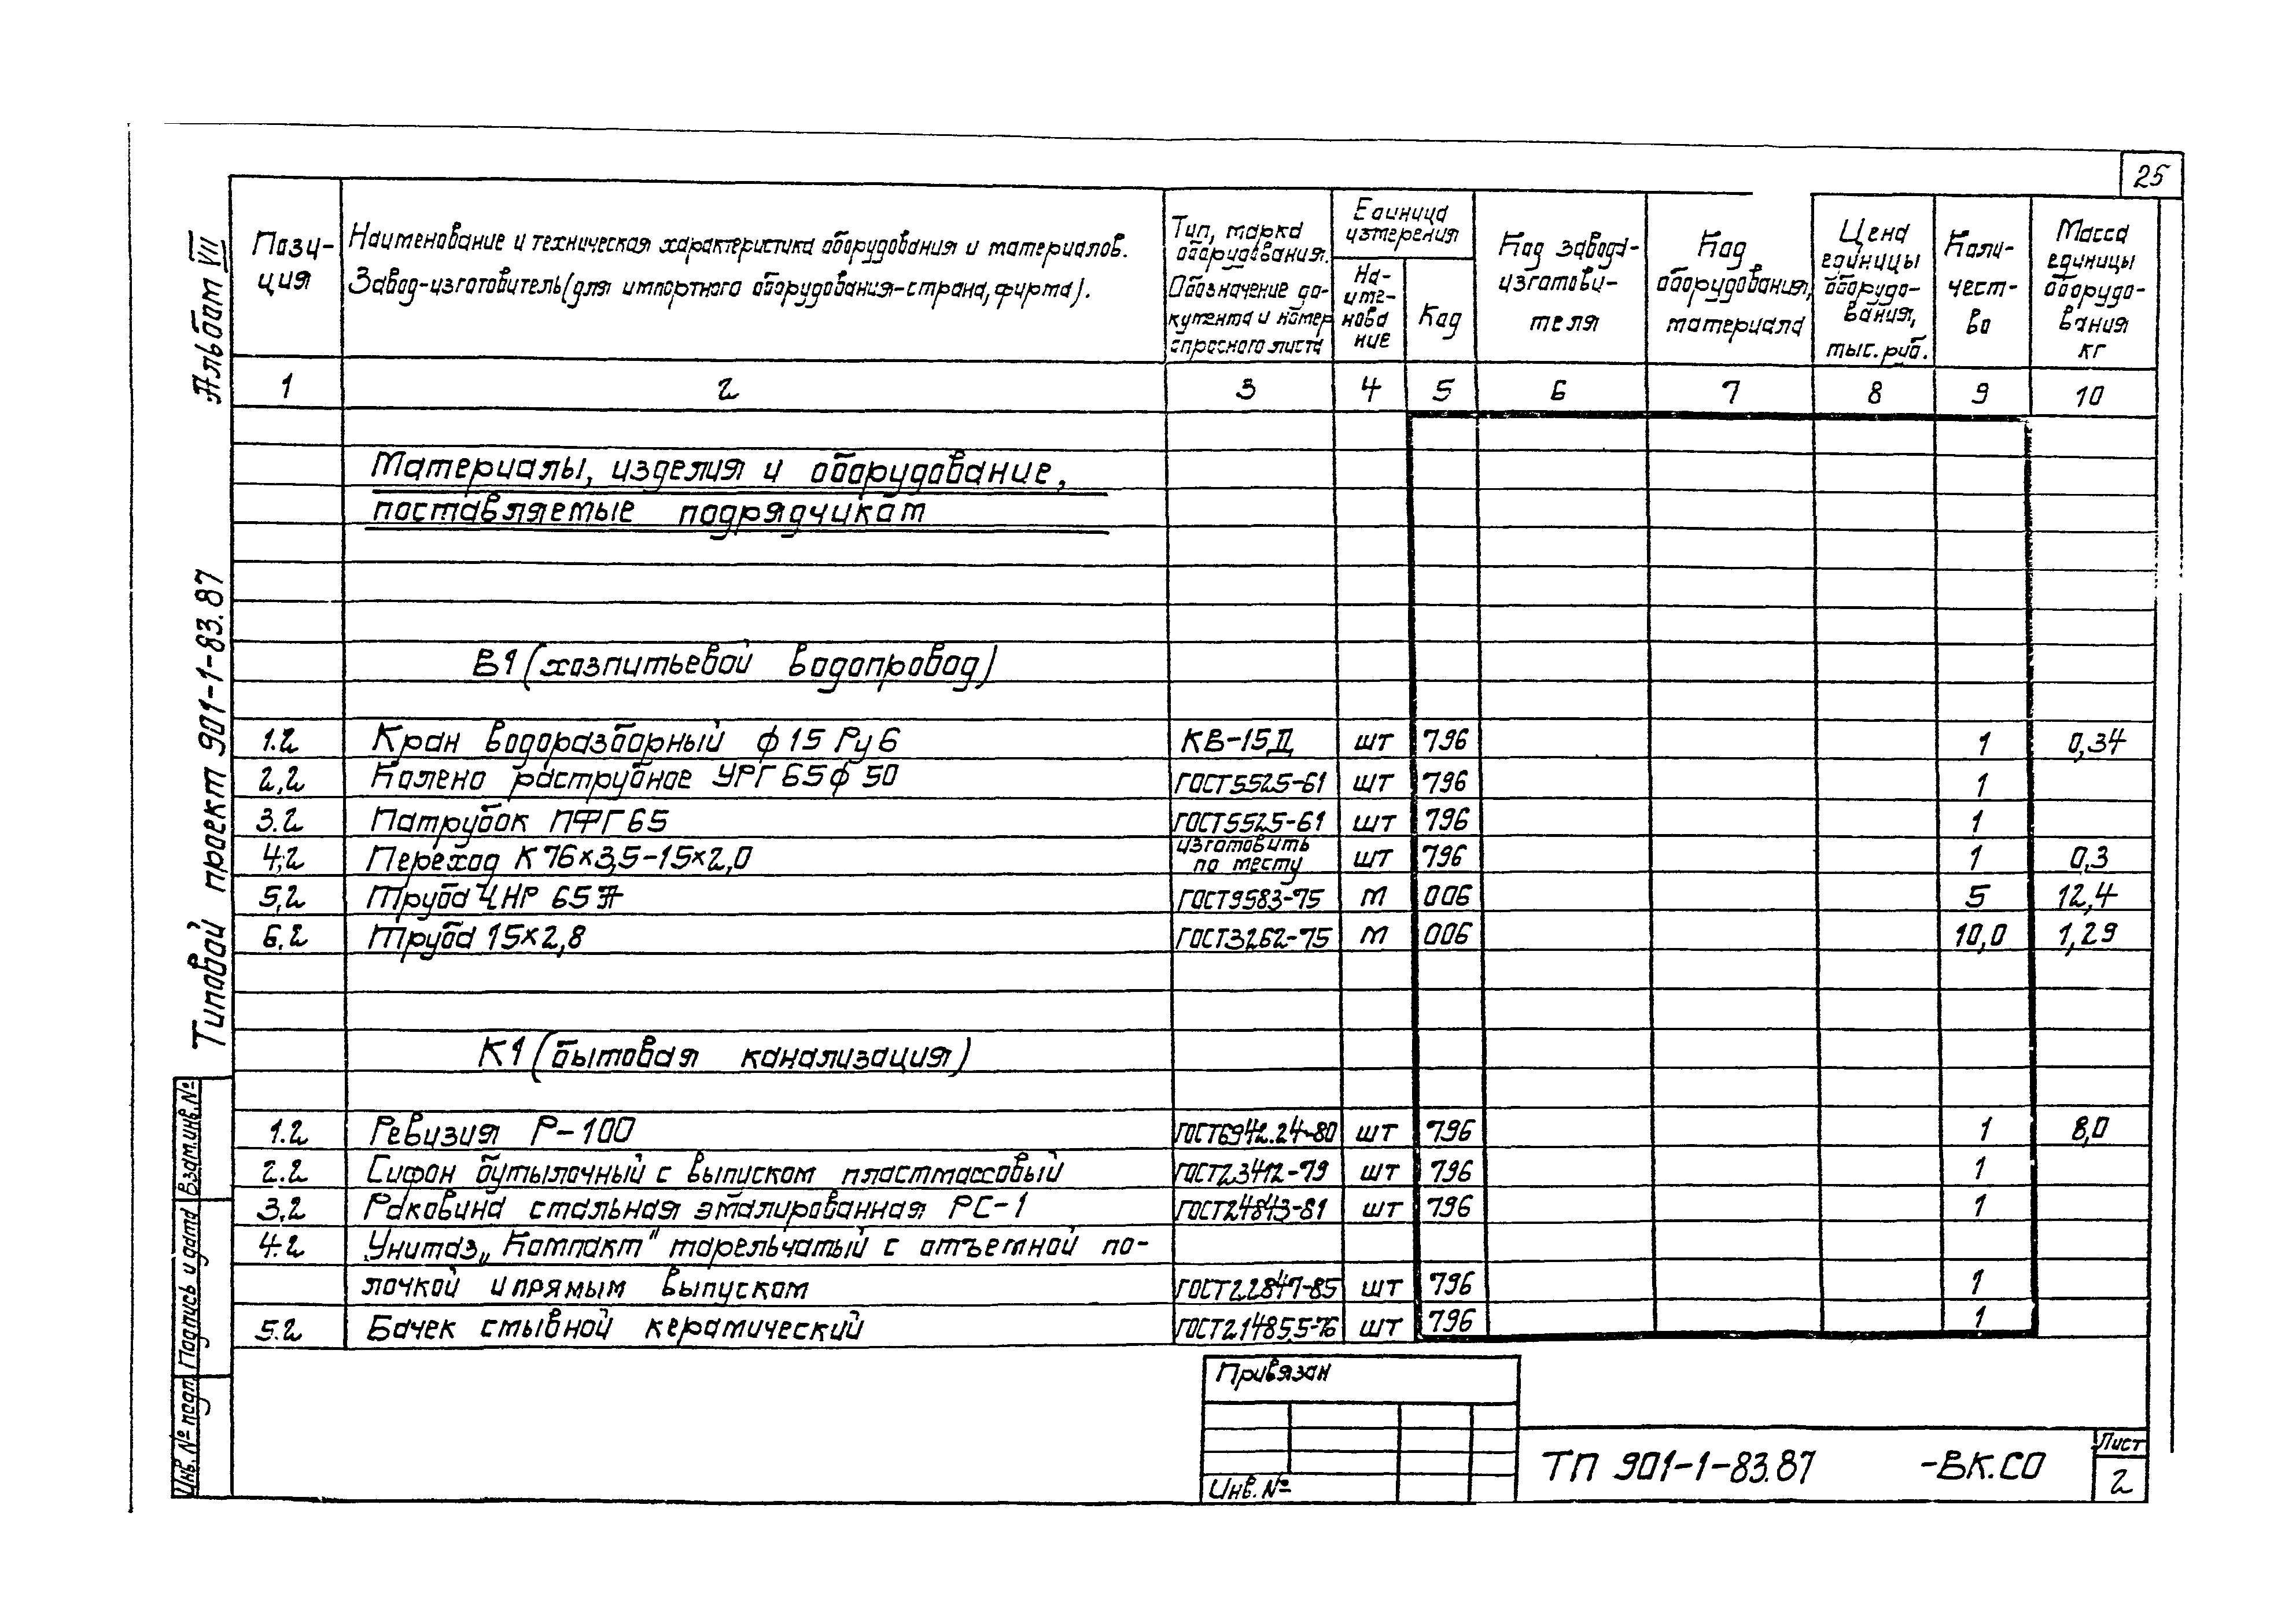 25
Альбом VII
Типовой проект 901-1-83.87
Взам.инв.№
Подпись и дата
Инв.№ подл.
Пози-
ция
Наименование и техническая характеристика оборудования и материалов.
Завод-изготовитель (для импортного оборудования-страна, фирма).
Тип, марка
оборудования.
Обозначение до-
кумента и номер
опросного листа
Единица
измерения
На-
име-
нова
ние
Код
Код завода-
изготови-
теля
Код
оборудования,
материала
Цена
единицы
оборудо-
вания,
тыс. руб.
Коли-
чест-
во
Масса
единицы
оборудо-
вания
кг
1 2 3 4 5 6 7 8 9 10
Материалы, изделия и оборудование,
поставляемые подрядчиком
В1 (хозпитьевой водопровод)
1.2 Кран водоразборный ф 15 Ру 6 КВ-15Д шт 796 1 0,34
2,2 Колено раструбное УРГ 65 ф 50 ГОСТ5525-61 шт 796 1
3.2 Патрубок ПФГ 65 ГОСТ5525-61 шт 796 1
4,2 Переход К 76×3,5-15×2,0 изготовить по месту шт 796 1 0,3
5,2 Труба ЧНР 65 А ГОСТ9583-75 м 006 5 12,4
6.2 Труба 15×2,8 ГОСТ3262-75 м 006 10,0 1,29
К1 (бытовая канализация)
1.2 Ревизия Р-100 ГОСТ6942.24-80 шт 796 1 8,0
2.2 Сифон бутылочный с выпуском пластмассовый ГОСТ23412-79 шт 796 1
3,2 Раковина стальная эмалированная РС-1 ГОСТ24843-81 шт 796 1
4.2 Унитаз „Компакт" тарельчатый с отъемной по-
лочкой и прямым выпуском ГОСТ22847-85 шт 796 1
5.2 Бачек смывной керамический ГОСТ21485,5-76 шт 796 1
Привязан
Инв.№
ТП 901-1-83.87 -ВК.СО
Лист
2